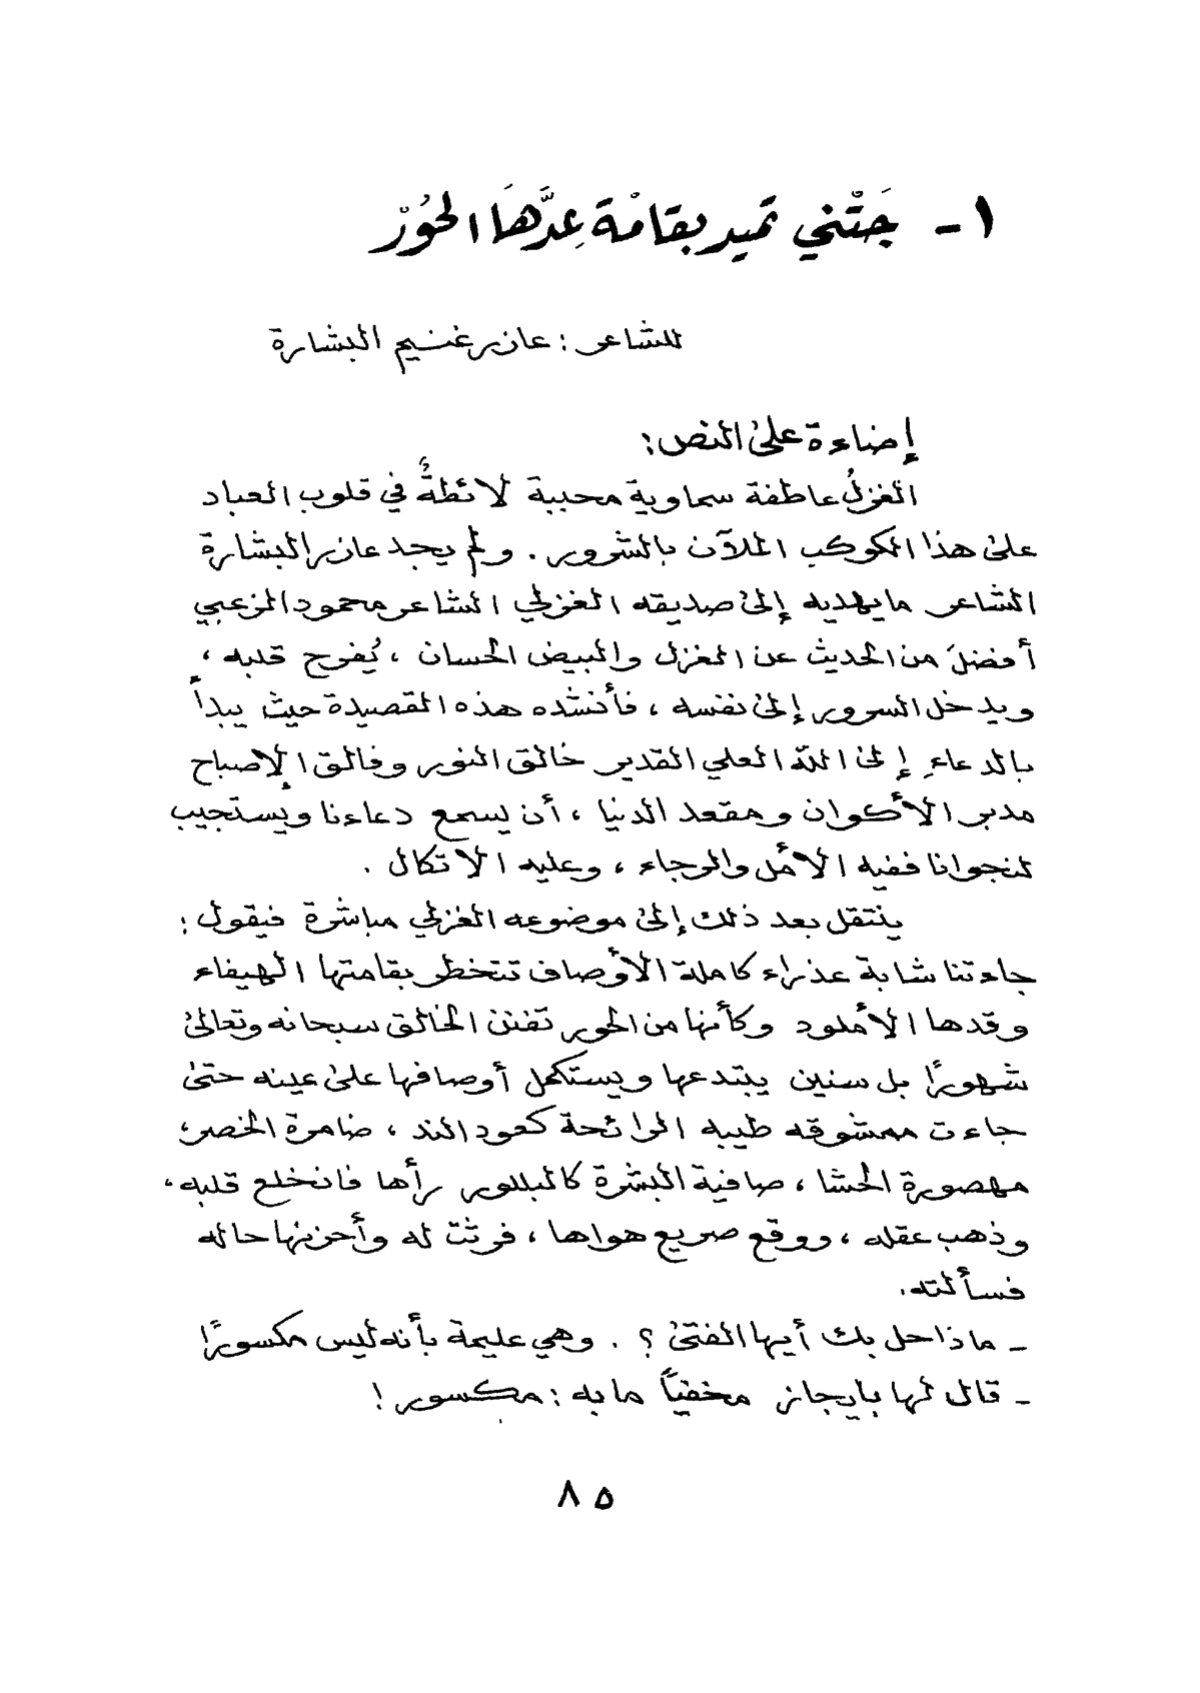 ١ - جَتْني تميد بقامْة عِدَّهَا الحُوْرْ
للشاعر : عازر غنيم البشارة
إضاءة على النص :
الغزلُ عاطفة سماوية محببة لائطةٌ في قلوب العباد
على هذا الكوكب الملآن بالشرور . ولم يجد عازر البشارة
الشاعر ما يهديه إلى صديقه الغزلي الشاعر محمود الزعبي
أفضلَ من الحديث عن الغزل والبيض الحسان ، يُفرح قلبه ،
ويدخل السرور إلى نفسه ، فأنشده هذه القصيدة حيث يبدأ
بالدعاءِ إلى الله العلي القدير خالق النور وفالق الإصباح
مدبر الأكوان ومقعد الدنيا ، أن يسمع دعاءنا ويستجيب
لنجوانا ففيه الأمل والرجاء ، وعليه الاتكال .
ينتقل بعد ذلك إلى موضوعه الغزلي مباشرة فيقول :
جاءتنا شابة عذراء كاملة الأوصاف تتخطر بقامتها الهيفاء
وقدها الأملود وكأنها من الحور تفنن الخالق سبحانه وتعالى
شهورًا بل سنين يبتدعها ويستكمل أوصافها على عينه حتى
جاءت ممشوقه طيبه الرائحة كعود الند ، ضامرة الخصر،
مهصورة الحشا ، صافية البشرة كالبللور رأها فانخلع قلبه ،
وذهب عقله ، ووقع صريع هواها ، فرثت له وأحزنها حاله
فسألته.
- ماذا حل بك أيها الفتى ؟ . وهي عليمة بأنه ليس مكسورًا
- قال لها بايجاز مخفياً ما به : مكسور !
٨٥